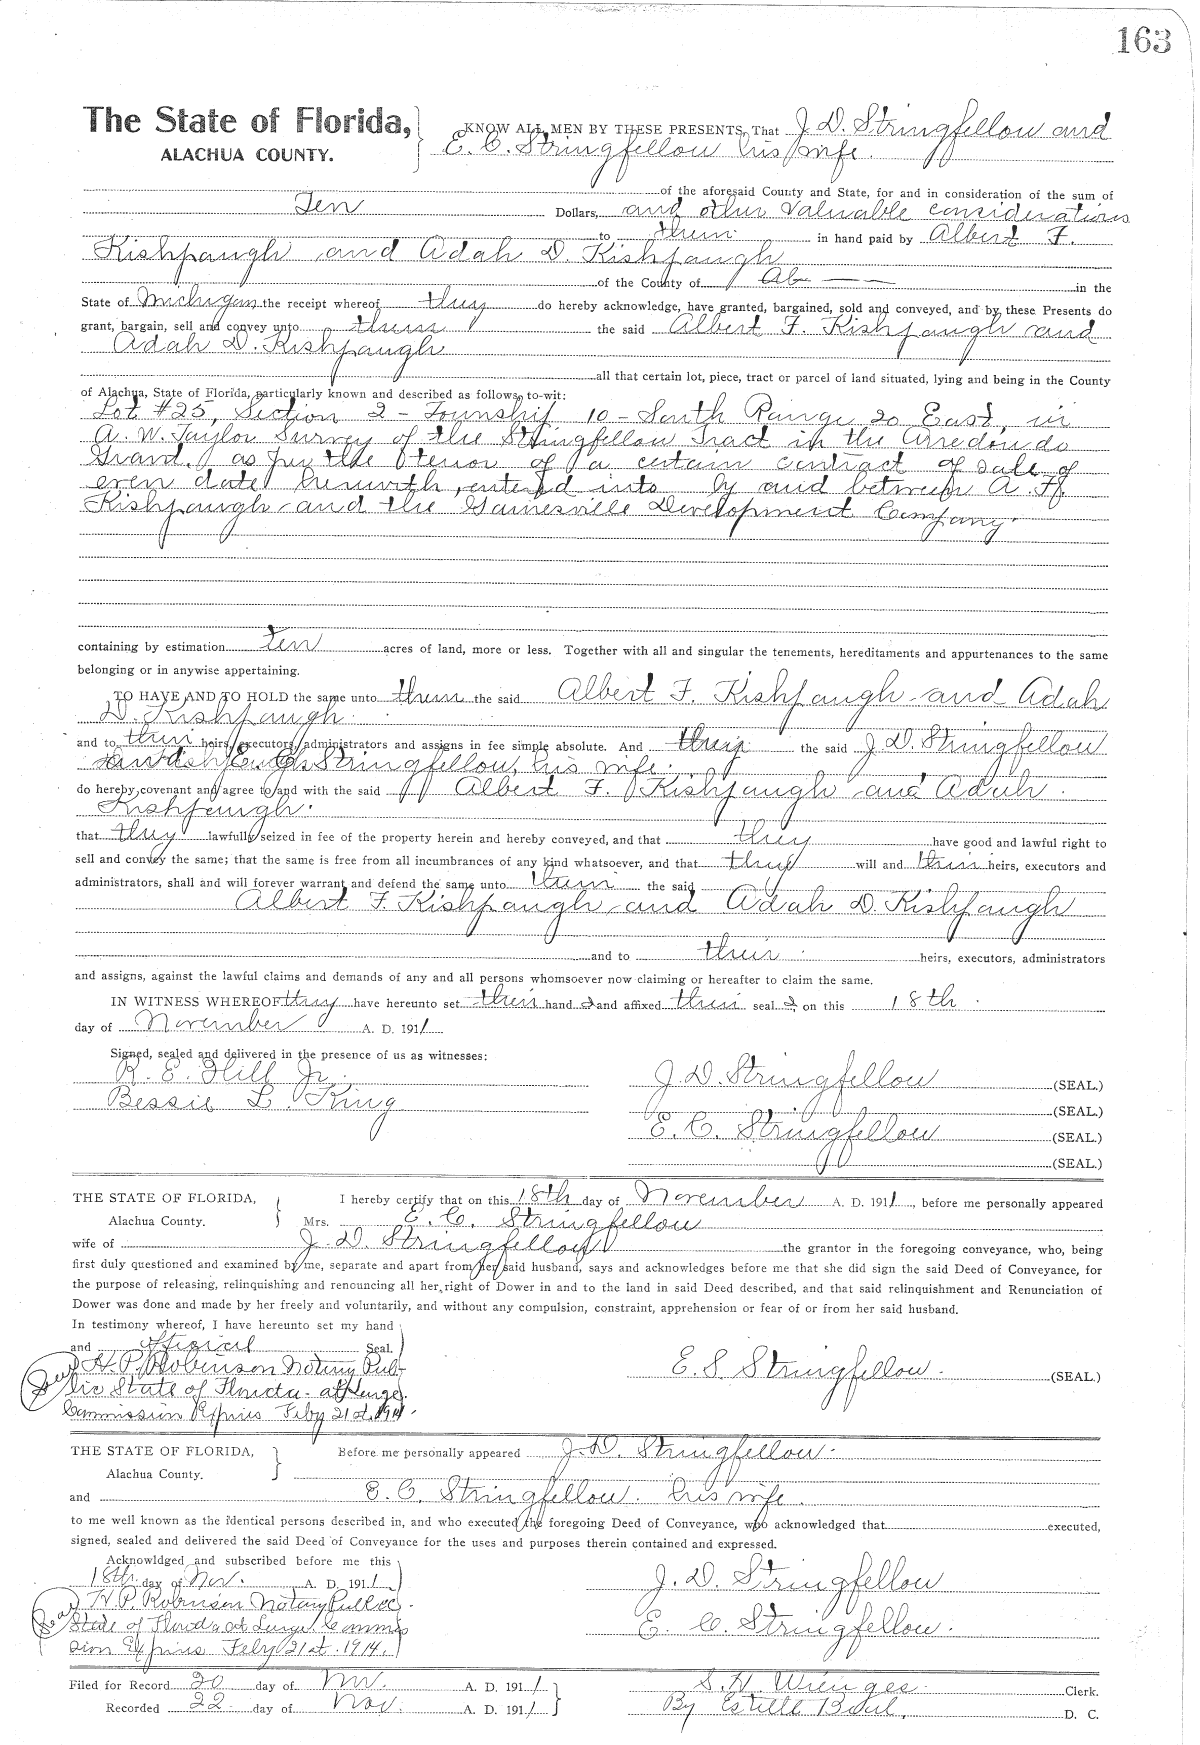 163
The State of Florida,
ALACHUA COUNTY.
KNOW ALL MEN BY THESE PRESENTS, That J. D. Stringfellow and
E. C. Stringfellow his wife.
of the aforesaid County and State, for and in consideration of the sum of
Ten Dollars, and other valuable considerations
to them in hand paid by Albert F.
Kishpaugh and Adah D. Kishpaugh
of the County of in the
State of Michigan the receipt whereof they do hereby acknowledge, have granted, bargained, sold and conveyed, and by these Presents do
grant, bargain, sell and convey unto them the said Albert F. Kishpaugh and
Adah D. Kishpaugh
all that certain lot, piece, tract or parcel of land situated, lying and being in the County
of Alachua, State of Florida, particularly known and described as follows, to-wit:
Lot #25, Section 2 - Township 10 - South Range 20 East, in
A. W. Taylor Survey of the Stringfellow Tract in the Arredondo
Grant. as per the tenor of a certain contract of sale of
even date herewith, entered into by and between A. F.
Kishpaugh and the Gainesville Development Company.
containing by estimation ten acres of land, more or less. Together with all and singular the tenements, hereditaments and appurtenances to the same
belonging or in anywise appertaining.
TO HAVE AND TO HOLD the same unto them the said Albert F. Kishpaugh and Adah
D. Kishpaugh.
and to their heirs, executors, administrators and assigns in fee simple absolute. And they the said J. D. Stringfellow
E. C. Stringfellow, his wife.
do hereby covenant and agree to and with the said Albert F. Kishpaugh and Adah
Kishpaugh.
that they lawfully seized in fee of the property herein and hereby conveyed, and that they have good and lawful right to
sell and convey the same; that the same is free from all incumbrances of any kind whatsoever, and that they will and their heirs, executors and
administrators, shall and will forever warrant and defend the same unto them the said
Albert F. Kishpaugh and Adah D. Kishpaugh
and to their heirs, executors, administrators
and assigns, against the lawful claims and demands of any and all persons whomsoever now claiming or hereafter to claim the same.
IN WITNESS WHEREOF they have hereunto set their hand s and affixed their seal s, on this 18th
day of November A. D. 1911
Signed, sealed and delivered in the presence of us as witnesses:
R. E. Hill Jr.
Bessie L. King
J. D. Stringfellow (SEAL.)
(SEAL.)
E. C. Stringfellow (SEAL.)
(SEAL.)
THE STATE OF FLORIDA,
Alachua County.
I hereby certify that on this 18th day of November A. D. 1911, before me personally appeared
Mrs. E. C. Stringfellow
wife of J. D. Stringfellow the grantor in the foregoing conveyance, who, being
first duly questioned and examined by me, separate and apart from her said husband, says and acknowledges before me that she did sign the said Deed of Conveyance, for
the purpose of releasing, relinquishing and renouncing all her right of Dower in and to the land in said Deed described, and that said relinquishment and Renunciation of
Dower was done and made by her freely and voluntarily, and without any compulsion, constraint, apprehension or fear of or from her said husband.
In testimony whereof, I have hereunto set my hand
and official Seal.
Seal H. P. Robinson Notary Pub-
lic State of Florida at Large.
Commission Expires Feby 21st. 1914.
E. S Stringfellow. (SEAL.)
THE STATE OF FLORIDA,
Alachua County.
Before me personally appeared J. D. Stringfellow.
and E. C. Stringfellow. his wife.
to me well known as the identical persons described in, and who executed the foregoing Deed of Conveyance, who acknowledged that executed,
signed, sealed and delivered the said Deed of Conveyance for the uses and purposes therein contained and expressed.
Acknowldged and subscribed before me this
18th day of Nov. A. D. 1911
Seal H. P. Robinson Notary Public
State of Florida at Large. Commis
sion Expires Feby 21st. 1914.
J. D. Stringfellow
E. C. Stringfellow.
Filed for Record 20 day of Nov. A. D. 1911
Recorded 22 day of Nov. A. D. 1911
S. H. Wienges. Clerk.
By Estelle D. C.